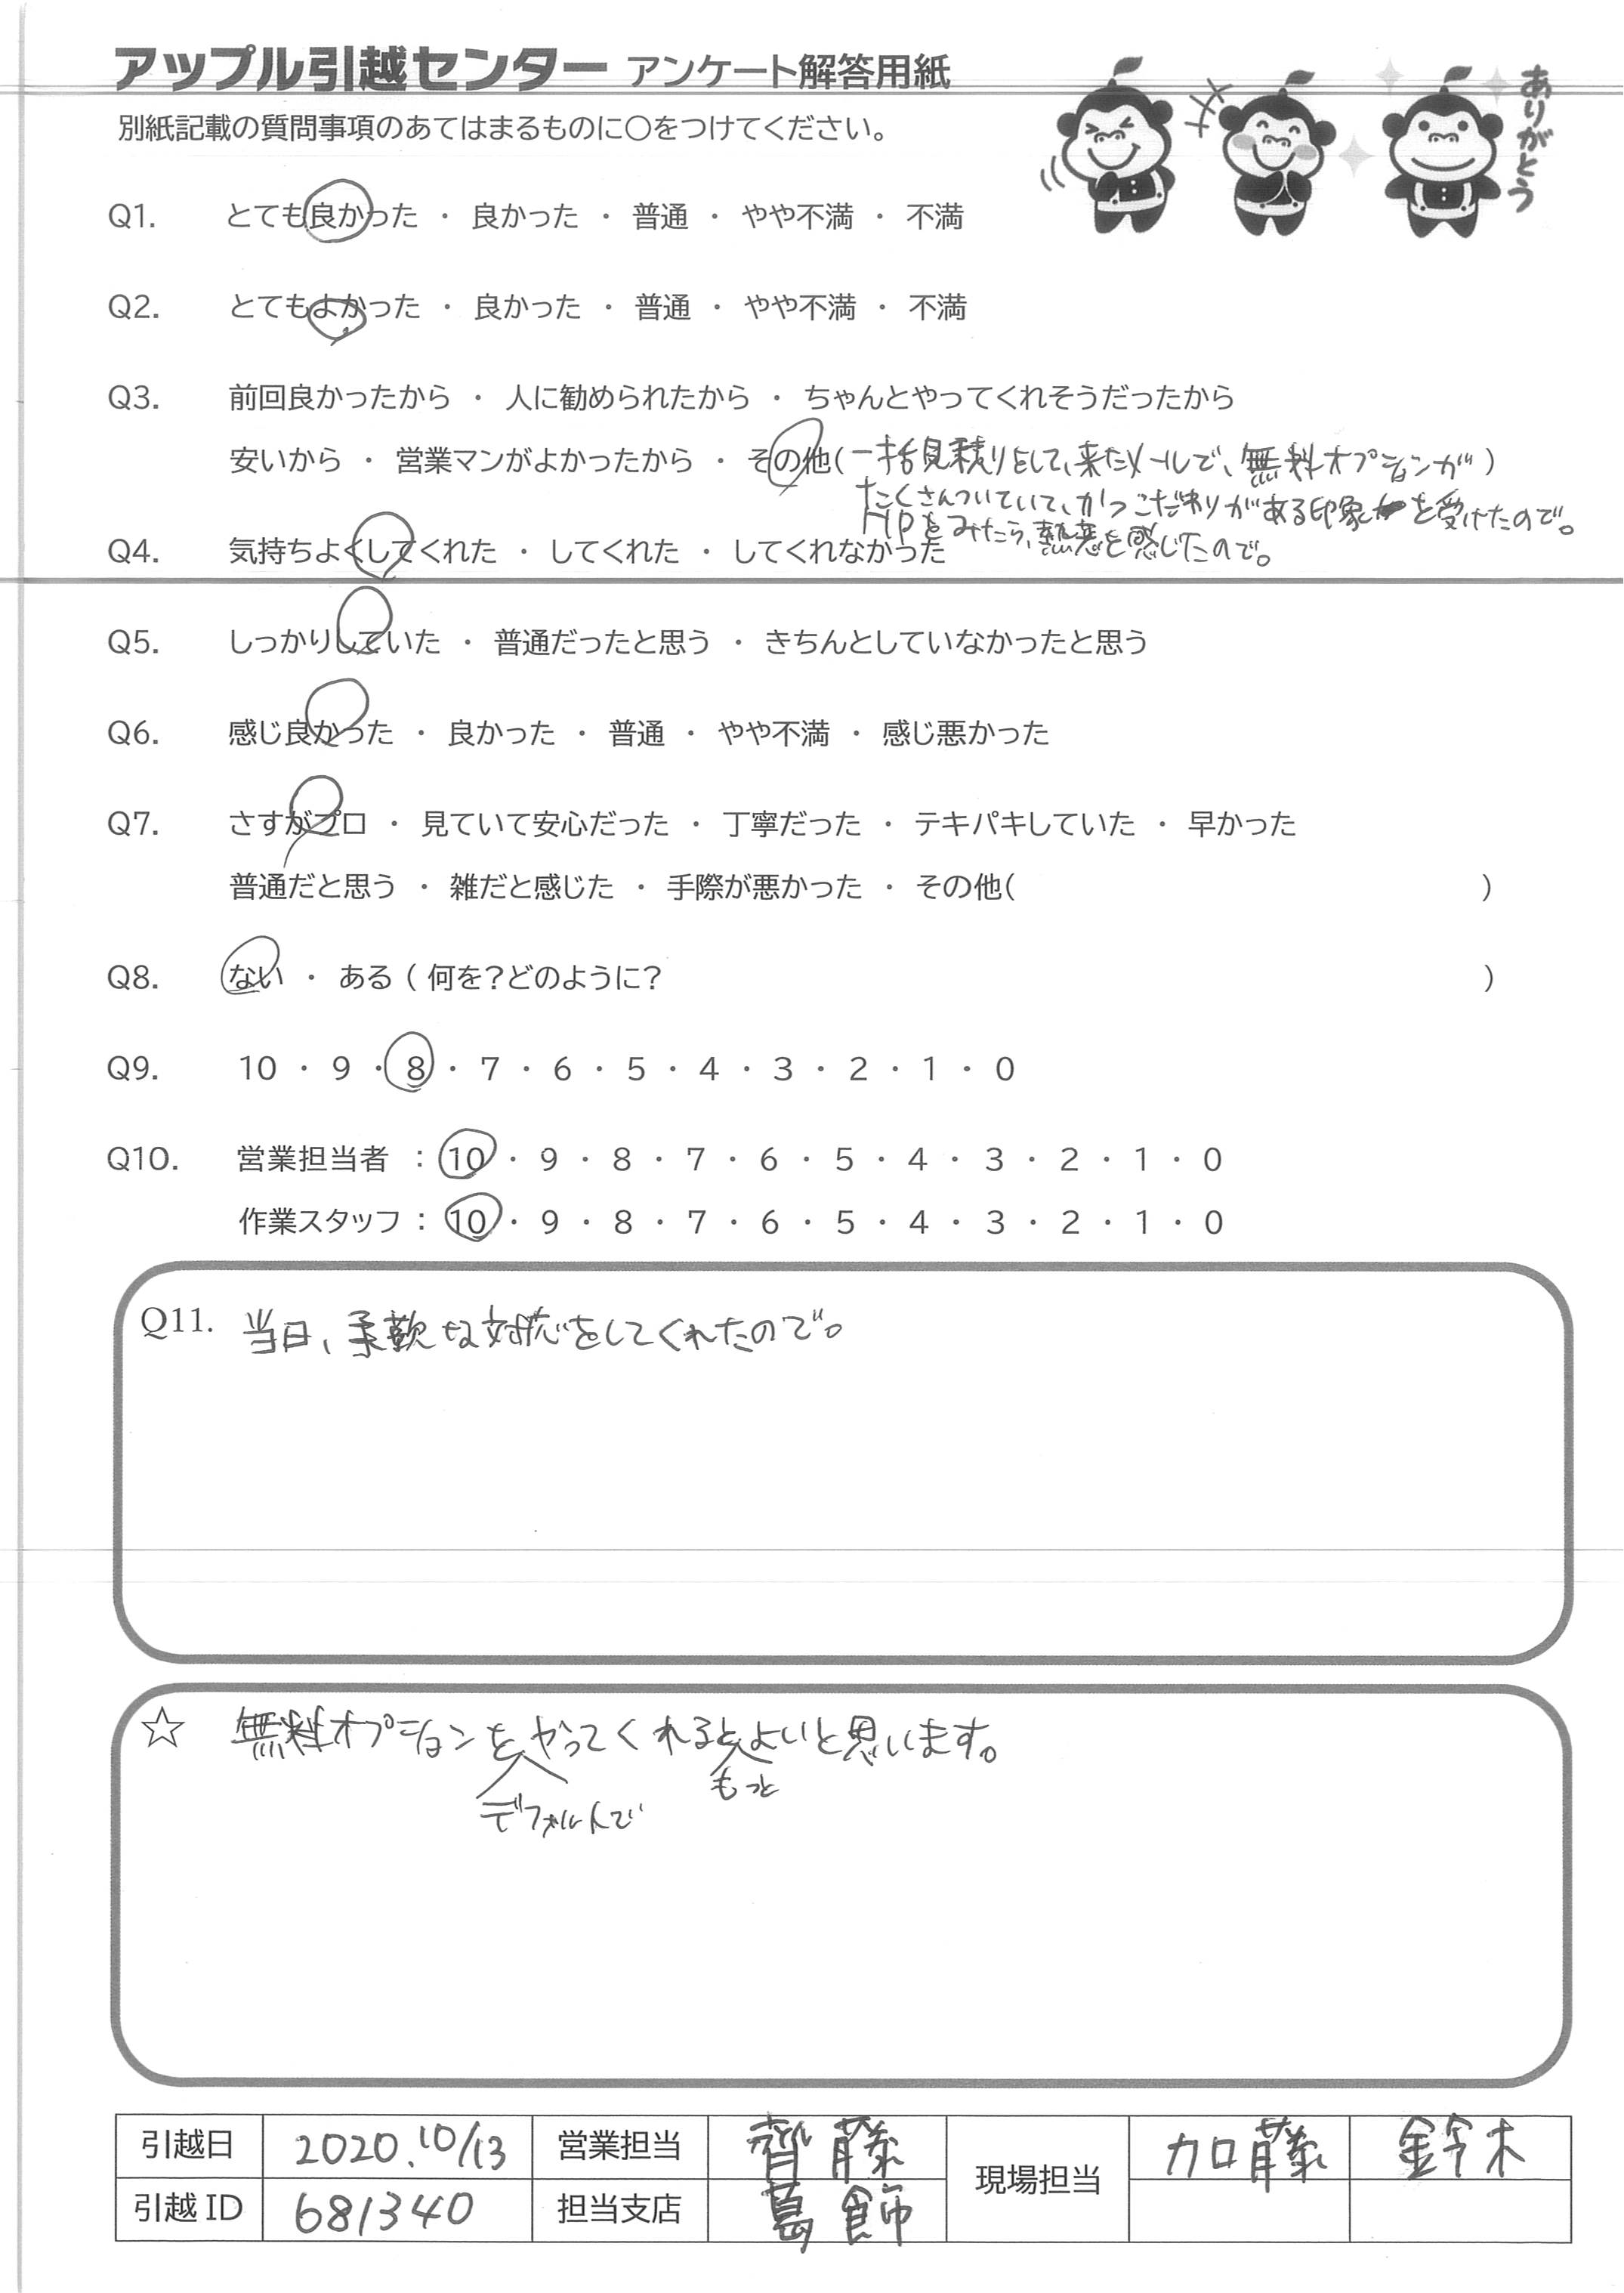 アップル引越センター アンケート解答用紙
ありがとう
別紙記載の質問事項のあてはまるものに○をつけてください。
Q1. とても良かった ・ 良かった ・ 普通 ・ やや不満 ・ 不満
Q2. とてもよかった ・ 良かった ・ 普通 ・ やや不満 ・ 不満
Q3. 前回良かったから ・ 人に勧められたから ・ ちゃんとやってくれそうだったから
安いから ・ 営業マンがよかったから ・ その他(一括見積りをして、来たメールで、無料オプションが)
たくさんついていて、かつこだわりがある印象を受けたので。
HPをみたら、熱意を感じたので。
Q4. 気持ちよくしてくれた ・ してくれた ・ してくれなかった
Q5. しっかりしていた ・ 普通だったと思う ・ きちんとしていなかったと思う
Q6. 感じ良かった ・ 良かった ・ 普通 ・ やや不満 ・ 感じ悪かった
Q7. さすがプロ ・ 見ていて安心だった ・ 丁寧だった ・ テキパキしていた ・ 早かった
普通だと思う ・ 雑だと感じた ・ 手際が悪かった ・ その他( )
Q8. ない ・ ある ( 何を?どのように? )
Q9. 10 ・ 9 ・ 8 ・ 7 ・ 6 ・ 5 ・ 4 ・ 3 ・ 2 ・ 1 ・ 0
Q10. 営業担当者 : 10 ・ 9 ・ 8 ・ 7 ・ 6 ・ 5 ・ 4 ・ 3 ・ 2 ・ 1 ・ 0
作業スタッフ : 10 ・ 9 ・ 8 ・ 7 ・ 6 ・ 5 ・ 4 ・ 3 ・ 2 ・ 1 ・ 0
Q11. 当日、柔軟な対応をしてくれたので。
☆ 無料オプションをやってくれるとよいと思います。
もっと
デフォルトで
引越日 2020.10/13 営業担当 齊藤 現場担当 加藤 鈴木
引越 ID 681340 担当支店 葛飾